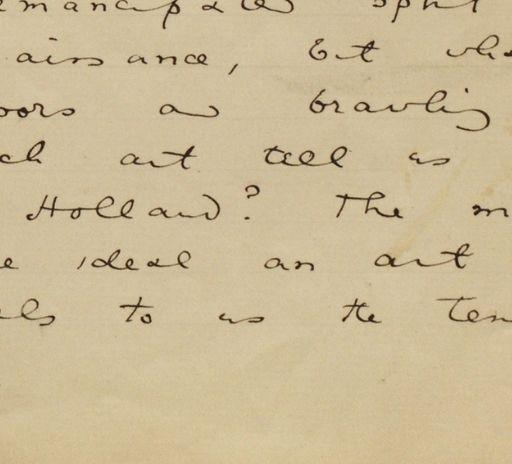 emancipated spirit
aissance, but whe
oors as brawling
ch art tell us
Holland? The m
e ideal an art
els to us the ten